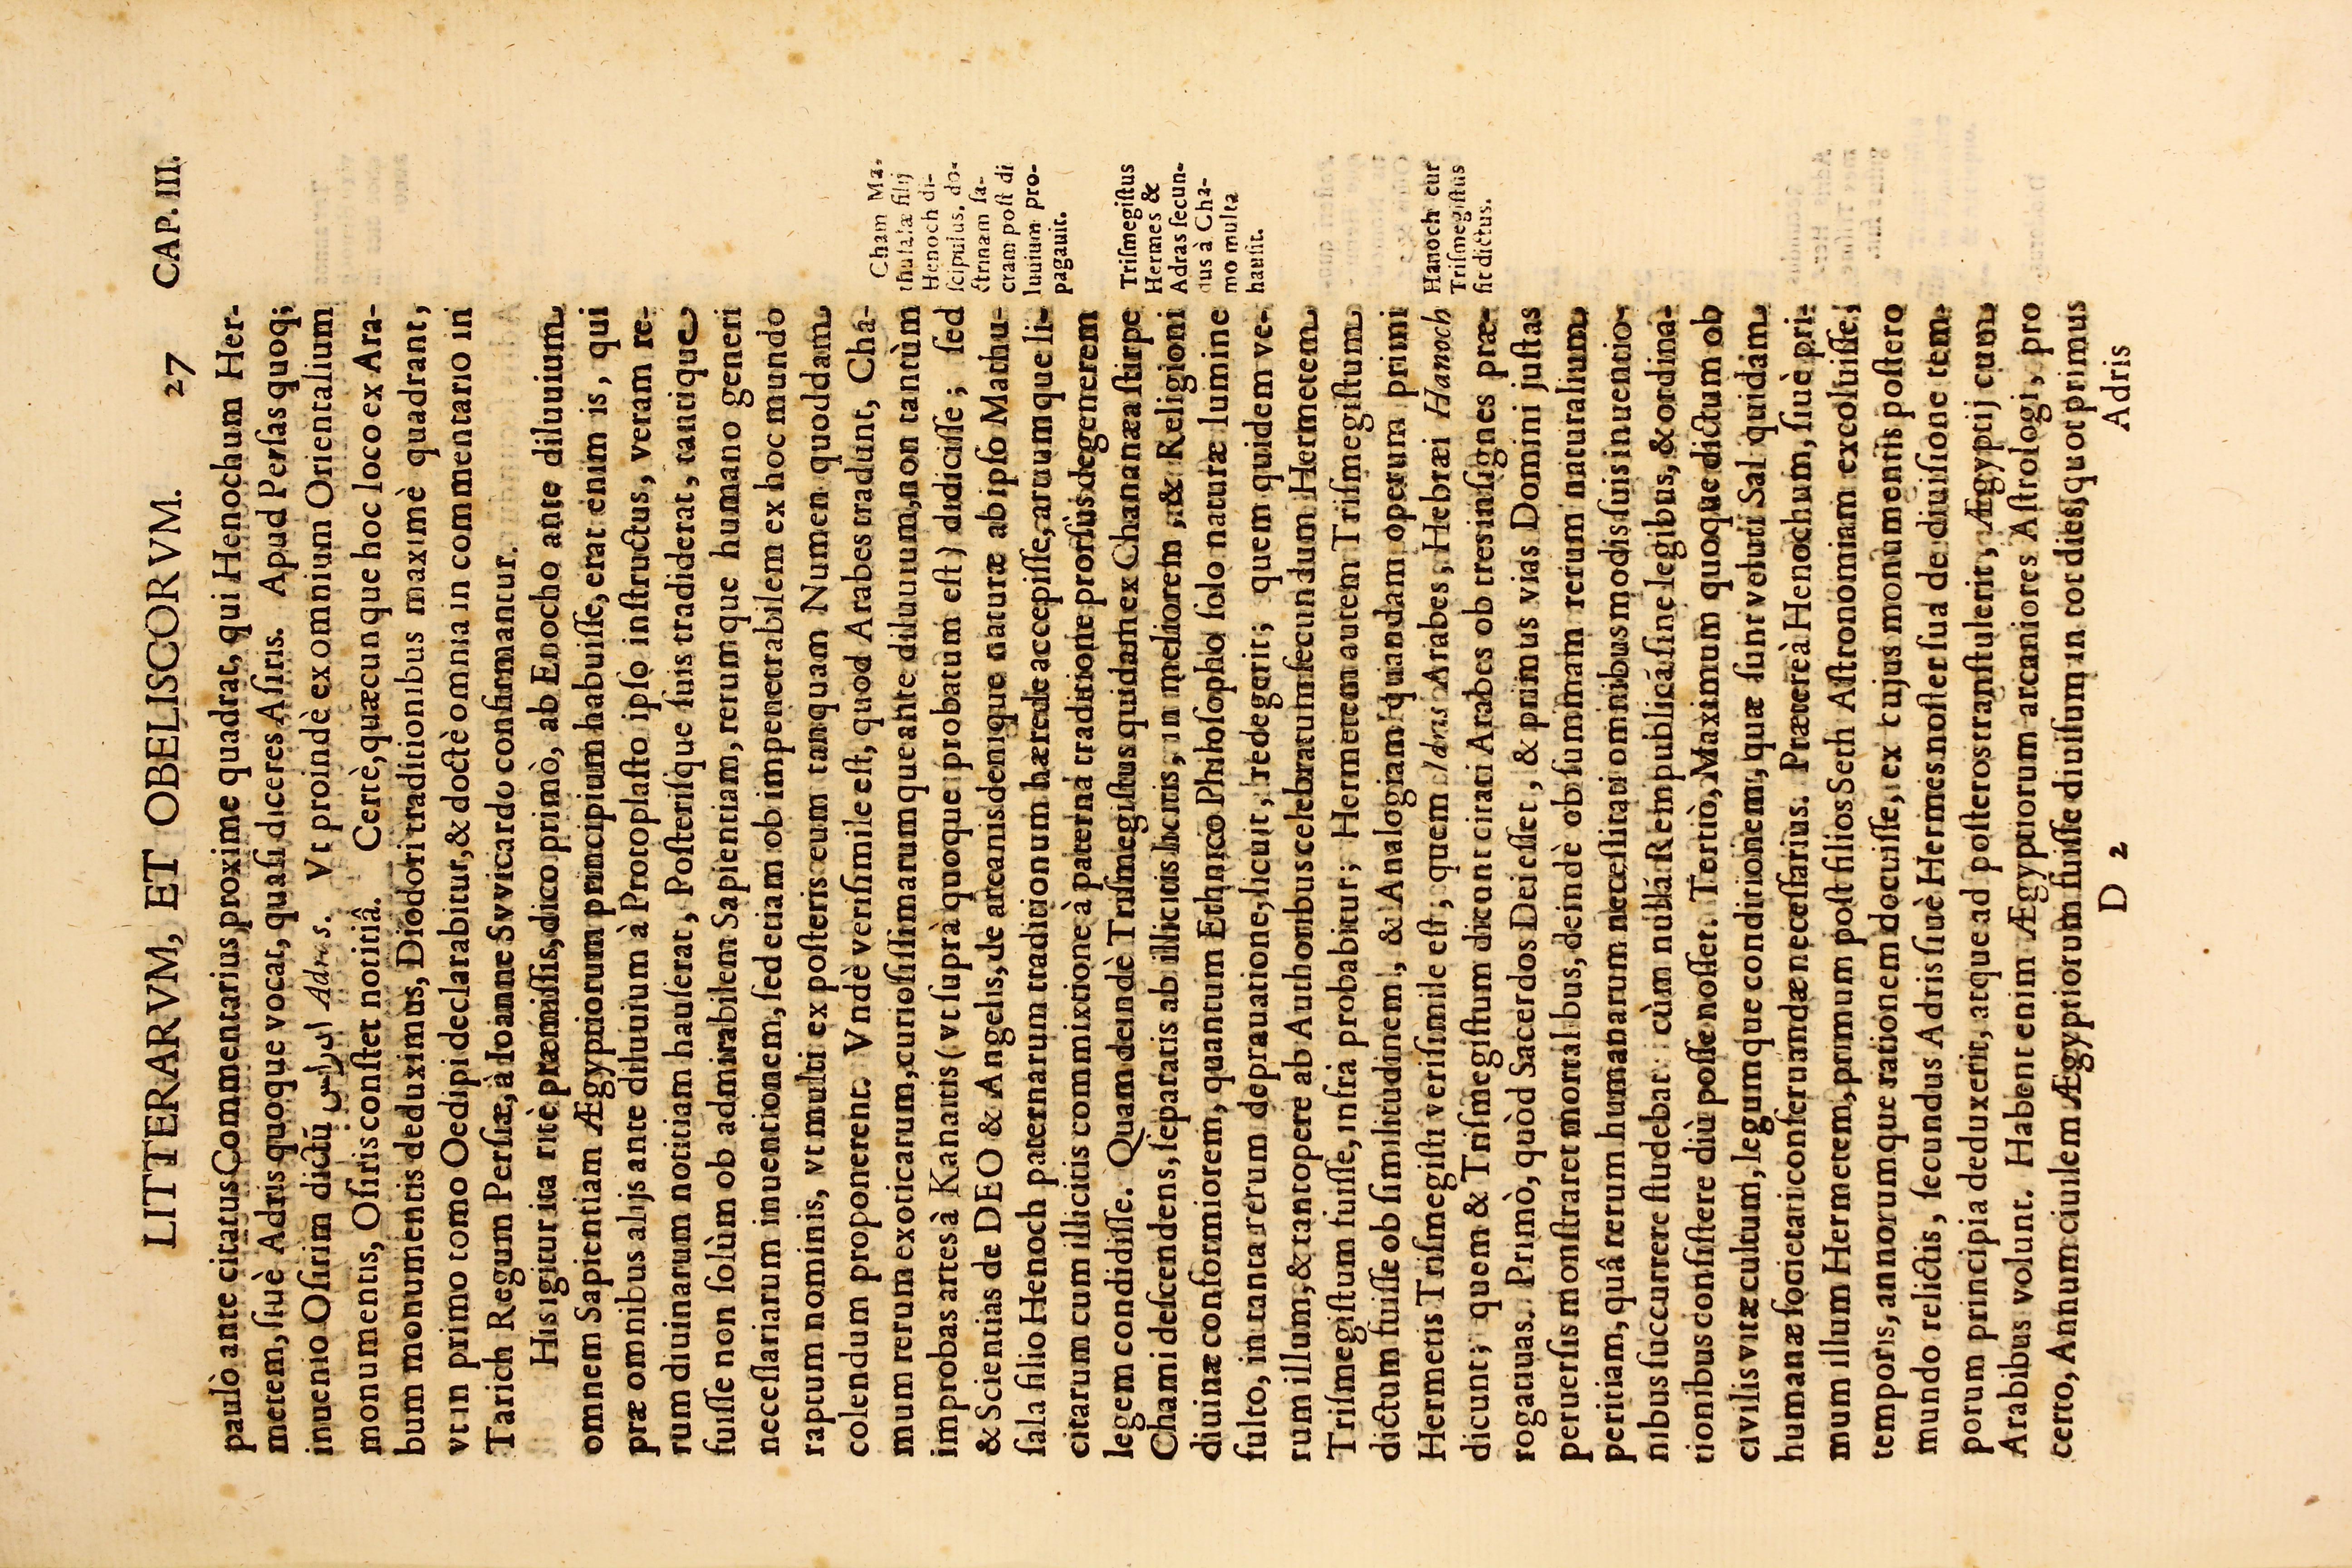 LITTERARVM, ET OBELISCORVM. 27 CAP. III.
paulò ante citatus Commentarius proxime quadrat, qui Henochum Her-
metem, siuè Adris quoque vocat, quasi diceres Asiris. Apud Persas quoq;
inuenio Osirim dictū ادراس Adras. Vt proindè ex omnium Orientalium
monumentis, Osiris constet notitiâ. Certè, quæcunque hoc loco ex Ara-
bum monumentis deduximus, Diodori traditionibus maximè quadrant,
vt in primo tomo Oedipi declarabitur, & doctè omnia in commentario in
Tarich Regum Persiæ, à Ioanne Svvicardo confirmantur.
His igitur ita ritè præmissis, dico primò, ab Enocho ante diluuium
omnem Sapientiam Ægyptiorum principium habuisse, erat enim is, qui
præ omnibus alijs ante diluuium à Protoplasto ipso instructus, veram re-
rum diuinarum notitiam hauserat, Posterisque suis tradiderat, tantique
fuisse non solùm ob admirabilem Sapientiam, rerumque humano generi
necessariarum inuentionem, sed etiam ob impenetrabilem ex hoc mundo
raptum nominis, vt multi ex posteris eum tanquam Numen quoddam
colendum proponerent. Vndè verisimile est, quod Arabes tradunt, Cha-
mum rerum exoticarum, curiosissimarumque ante diluuium, non tantùm
improbas artes à Kanaitis (vt suprà quoque probatum est) didicisse; sed
& Scientias de DEO & Angelis, de arcanis denique naturæ ab ipso Mathu-
sala filio Henoch paternarum traditionum hærede accepisse, artiumque li-
citarum cum illicitis commixtione à paterna traditione prorsùs degenerem
legem condidisse. Quam deindè Trismegistus quidam ex Chananæa stirpe
Chami descendens, separatis ab illicitis licitis, in meliorem, & Religioni
diuinæ conformiorem, quantum Ethnico Philosopho solo naturæ lumine
fulto, in tanta rerum deprauatione, licuit, redegerit; quem quidem ve-
rum illum, & tantopere ab Authoribus celebratum secundum Hermetem
Trismegistum fuisse, infra probabitur; Hermetem autem Trismegistum
dictum fuisse ob similitudinem, & Analogiam quandam operum primi
Hermetis Trismegisti verisimile est; quem Idris Arabes, Hebræi Hanoch
dicunt; quem & Trismegistum dicunt citati Arabes ob tres insignes præ-
rogatiuas. Primò, quòd Sacerdos Dei esset, & primus vias Domini justas
peruersis monstraret mortalibus, deindè ob summam rerum naturalium
peritiam, quâ rerum humanarum necessitati omnibus modis suis inuentio-
nibus succurrere studebat: cùm nullá Rempublicá sine legibus, & ordina-
tionibus consistere diù posse nosset. Tertiò, Maximum quoque dictum ob
civilis vitæ cultum, legumque conditionem, quæ sunt veluti Sal quidam
humanæ societati conseruandæ necessarius. Prætereà Henochum, siuè pri-
mum illum Hermetem, primum post filios Seth Astronomiam excoluisse,
temporis, annorumque rationem docuisse, ex cujus monumentis postero
mundo relictis, secundus Adris siuè Hermes noster sua de diuisione tem-
porum principia deduxerit, atque ad posteros transtulerit, Ægyptij cum
Arabibus volunt. Habent enim Ægyptiorum arcaniores Astrologi, pro
certo, Annum ciuilem Ægyptiorum fuisse diuisum in tot dies, quot primus
D 2 Adris
Cham Ma-
thusalæ filij
Henoch di-
scipulus, do-
ctrinam sa-
cram post di
luuium pro-
pagauit.
Trismegistus
Hermes &
Adras secun-
dus à Cha-
mo multa
hausit.
Hanoch cur
Trismegistus
sit dictus.